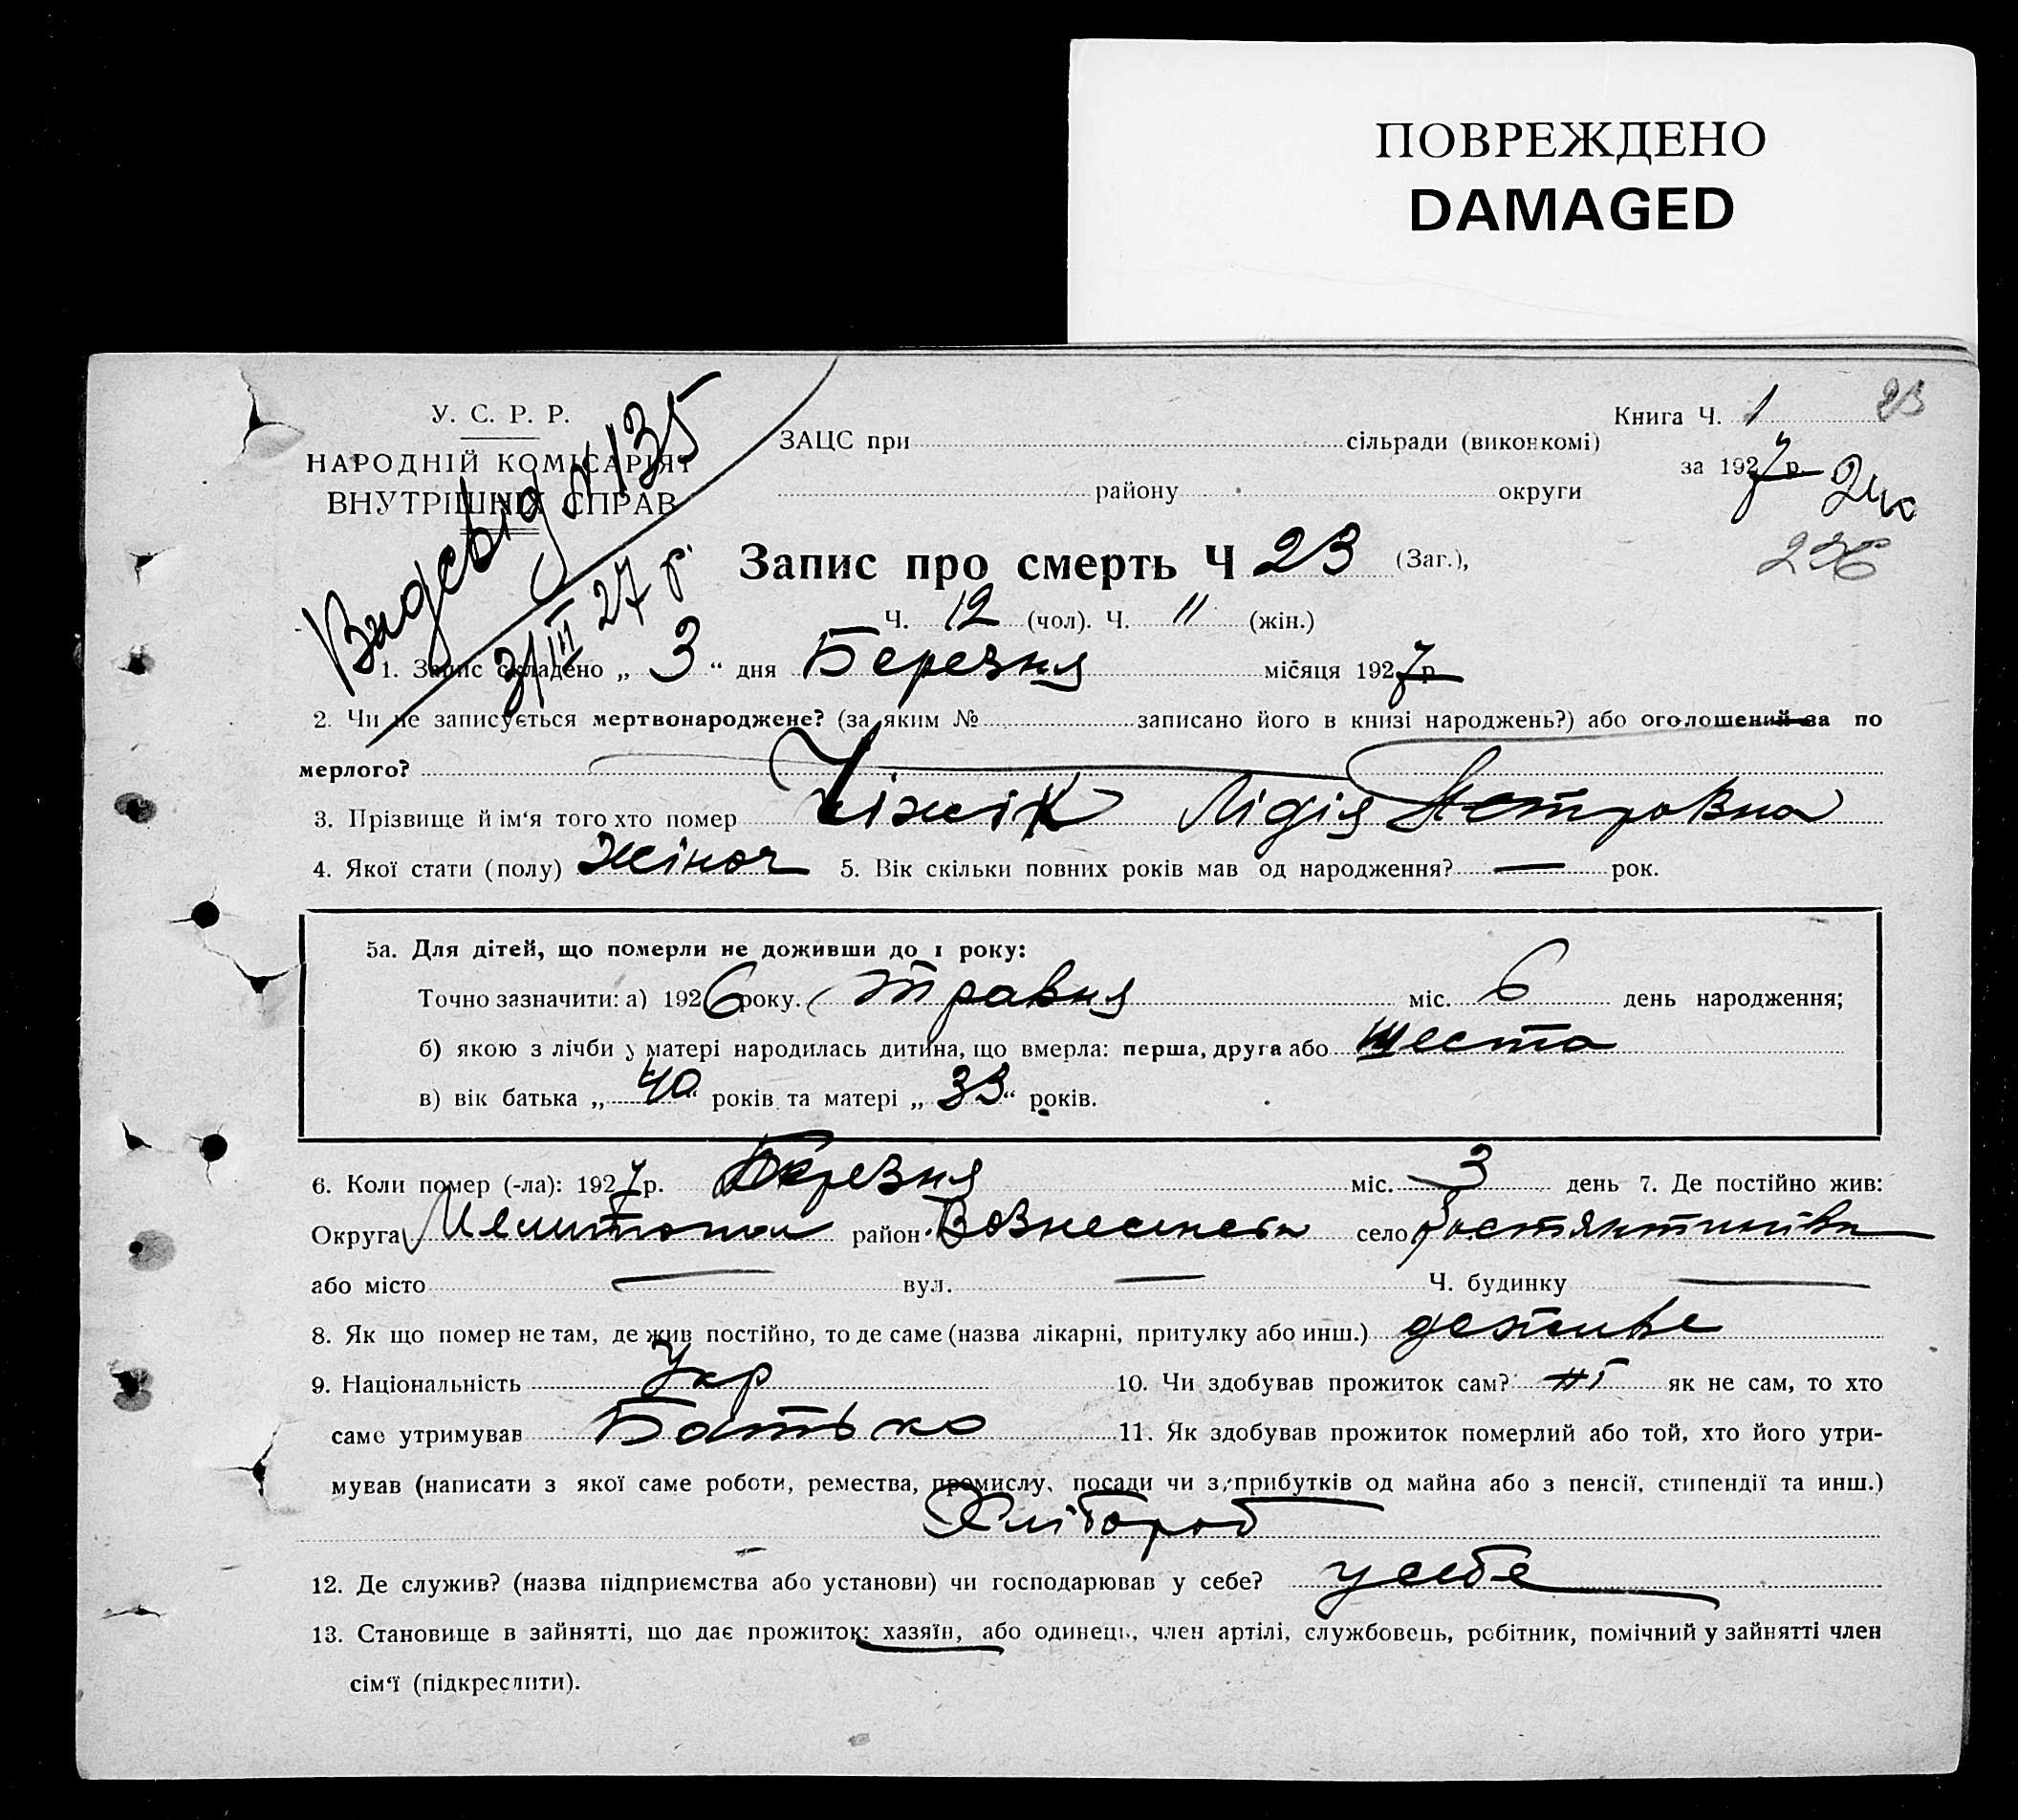 ПОВРЕЖДЕНО
DAMAGED
У. С. Р. Р.
НАРОДНІЙ КОМІСАРІЯТ
ВНУТРІШНІХ СПРАВ
Видсвід N 135
31/III 27 р
Книга Ч. 1
23
ЗАЦС при сільради (виконкомі)
за 1927 р.
району округи
236
Запис про смерть Ч 23 (Заг.),
Ч. 12 (чол). Ч. 11 (жін.)
1. Запис складено „ 3 “ дня Березня місяця 1927 р
2. Чи не записується мертвонароджене? (за яким № записано його в книзі народжень?) або оголошений за по
мерлого?
3. Прізвище й ім‘я того хто помер Чіжік Лідія Петровна
4. Якої стати (полу) Жіноч 5. Вік скільки повних років мав од народження? — рок.
5а. Для дітей, що померли не доживши до 1 року:
Точно зазначити: а) 1926 року. Травня міс. 6 день народження;
б) якою з лічби у матері народилась дитина, що вмерла: перша, друга або шеста
в) вік батька „ 40 “ років та матері „ 33 “ років.
6. Коли помер (-ла): 1927 р. Березня міс. 3 день 7. Де постійно жив:
Округа Мелитопол район Вознесенська село Костянтинівка
або місто — вул. — Ч. будинку —
8. Як що помер не там, де жив постійно, то де саме (назва лікарні, притулку або инш.)
9. Національність Укр 10. Чи здобував прожиток сам? ні як не сам, то хто
саме утримував Батько 11. Як здобував прожиток померлий або той, хто його утри-
мував (написати з якої саме роботи, ремества, промислу, посади чи з прибутків од майна або з пенсії, стипендії та инш.)
Хлібороб
12. Де служив? (назва підприємства або установи) чи господарював у себе? у себе
13. Становище в зайнятті, що дає прожиток: хазяїн, або одинець, член артілі, службовець, робітник, помічний у зайнятті член
сім‘ї (підкреслити).